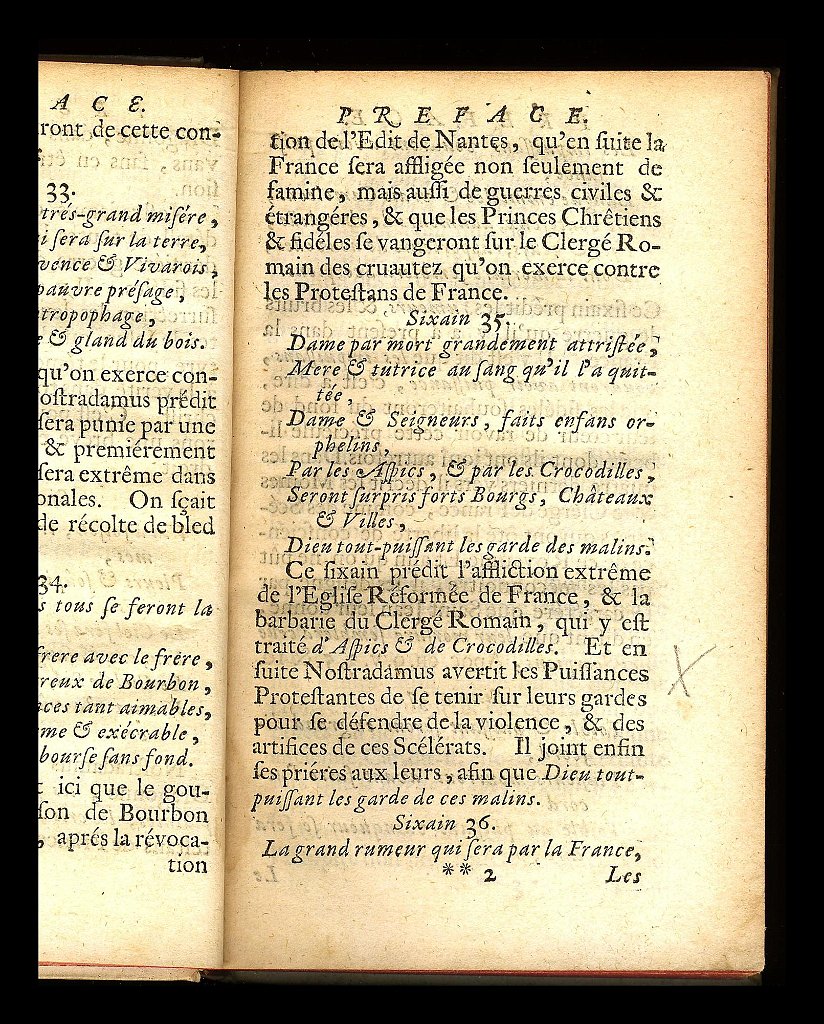 A C E.
ront de cette con-
33.
trés-grand misére,
i sera sur la terre,
vence & Vivarois,
pauvre présage,
tropophage,
e & gland du bois.
qu'on exerce con-
ostradamus prédit
sera punie par une
& premiérement
sera extrême dans
onales. On sçait
de récolte de bled
34.
s tous se feront la
frere avec le frére,
reux de Bourbon,
nces tant aimables,
me & exécrable,
bourse sans fond.
ici que le gou-
son de Bourbon
, aprés la révoca-
tion
P R E F A C E.
tion de l'Edit de Nantes, qu'en suite la
France sera affligée non seulement de
famine, mais aussi de guerres civiles &
étrangéres, & que les Princes Chrêtiens
& fidéles se vangeront sur le Clergé Ro-
main des cruautez qu'on exerce contre
les Protestans de France.
Sixain 35.
Dame par mort grandement attristée,
Mere & tutrice au sang qu'il l'a quit-
tée,
Dame & Seigneurs, faits enfans or-
phelins,
Par les Aspics, & par les Crocodilles,
Seront surpris forts Bourgs, Châteaux
& Villes,
Dieu tout-puissant les garde des malins.
Ce sixain prédit l'affliction extrême
de l'Eglise Réformée de France, & la
barbarie du Clergé Romain, qui y est
traité d'Aspics & de Crocodilles. Et en
suite Nostradamus avertit les Puissances
Protestantes de se tenir sur leurs gardes
pour se défendre de la violence, & des
artifices de ces Scélérats. Il joint enfin
ses priéres aux leurs, afin que Dieu tout-
puissant les garde de ces malins.
Sixain 36.
La grand rumeur qui sera par la France,
** 2 Les